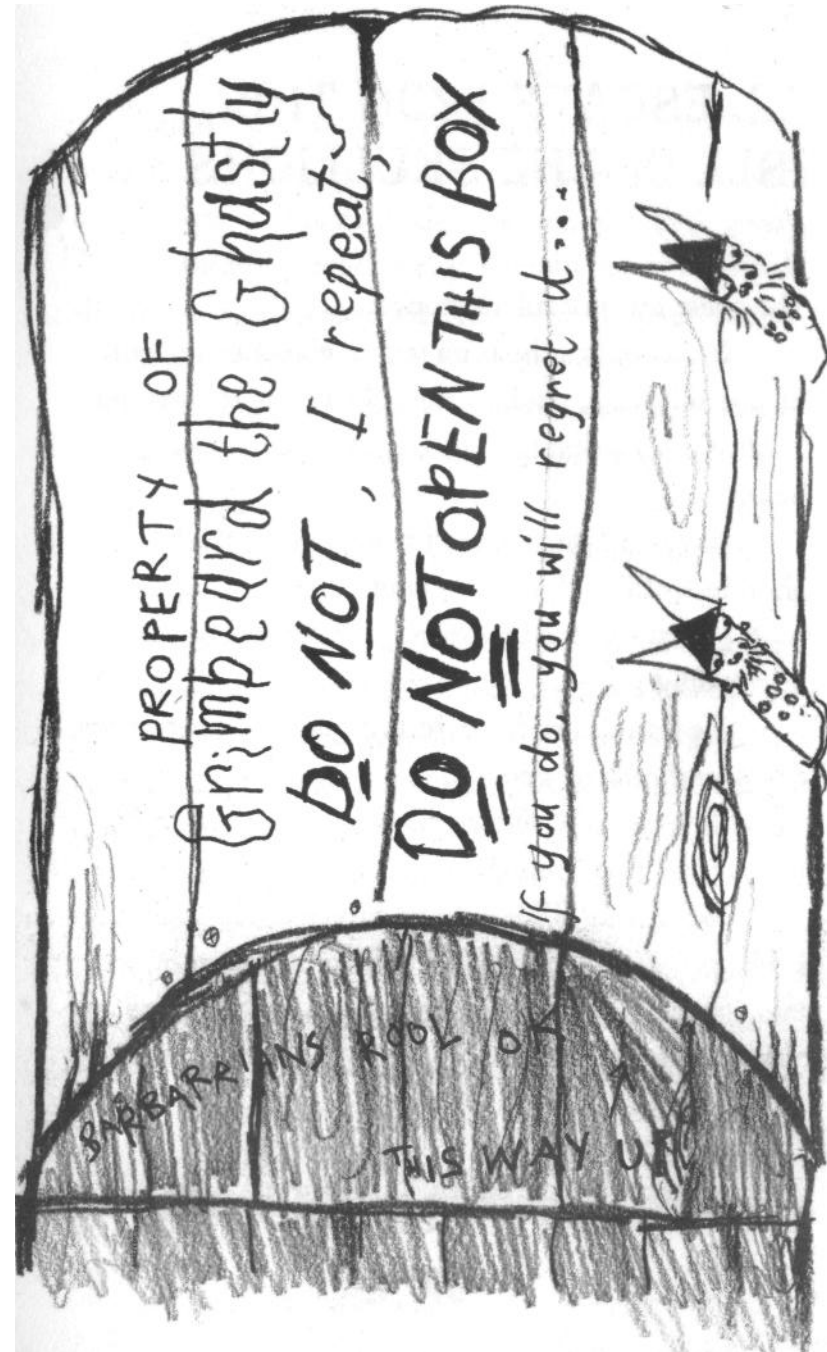 PROPERTY OF
Grimbeard the Ghastly
DO NOT, I repeat,
DO NOT OPEN THIS BOX
If you do, you will regret it...
BARBARRIANS ROOL OK
THIS WAY UP